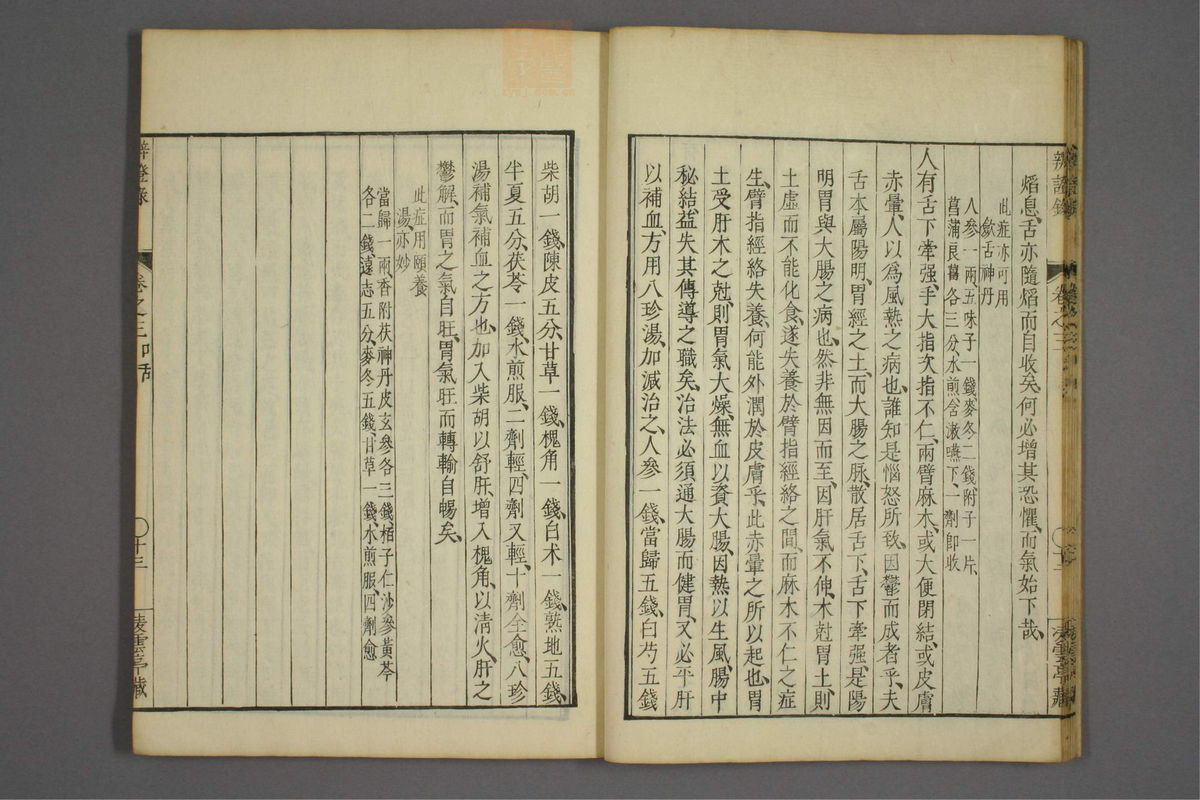 辨證錄
卷之三
熖息、舌亦隨熖而自收矣、何必增其恐懼、而氣始下哉、
此症亦可用
斂舌神丹
人參一兩、五味子一錢麥冬二錢附子一片、
菖蒲良薑各三分、水煎含漱嚥下、一劑卽收
人有舌下牽强、手大指次指不仁、兩臂麻木、或大便閉結、或皮膚
赤暈、人以爲風熱之病也、誰知是惱怒所致、因鬱而成者乎、夫
舌本屬陽明、胃經之土、而大腸之脉、散居舌下、舌下牽强、是陽
明胃與大腸之病也、然非無因而至、因肝氣不伸、木尅胃土、則
土虛而不能化食、遂失養於臂指經絡之間、而麻木不仁之症
生、臂指經絡失養、何能外潤於皮膚乎、此赤暈之所以起也、胃
土受肝木之尅、則胃氣大燥、無血以資大腸、因熱以生風、腸中
秘結、益失其傳導之職矣、治法必須通大腸而健胃、又必平肝
以補血、方用八珍湯、加減治之、人參一錢、當歸五錢、白芍五錢
柴胡一錢、陳皮五分、甘草一錢、槐角一錢、白术一錢、熟地五錢、
半夏五分、茯苓一錢、水煎服、二劑輕、四劑又輕、十劑全愈、八珍
湯補氣補血之方也、加入柴胡以舒肝、增入槐角、以清火、肝之
鬱解、而胃之氣自旺、胃氣旺而轉輸自暢矣、
此症用頤養
湯、亦妙
當歸一兩、香附茯神丹皮玄參各三錢、柏子仁沙參黃芩
各二錢、遠志五分、麥冬五錢、甘草一錢、水煎服、四劑愈
辨證錄
卷之三口舌
十三
凌雲亭藏